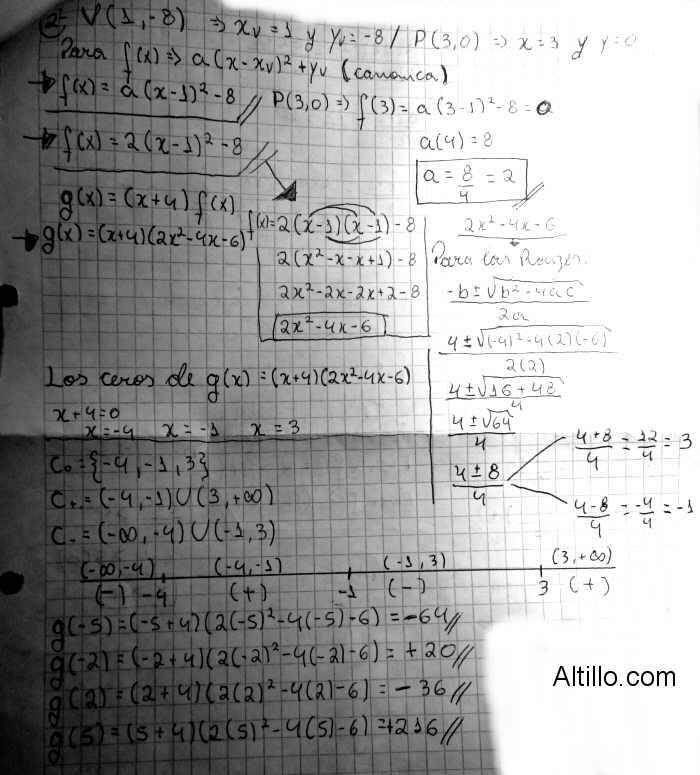 2- V(1,-8) ⇒ xv=1 y yv=-8 / P(3,0) ⇒ x=3 y y=0
Para f(x) ⇒ a(x-xv)²+yv (canonica)
→ f(x)= a(x-1)²-8 // P(3,0) ⇒ f(3)= a(3-1)²-8=0
a(4)=8
→ f(x)=2(x-1)²-8 //
a=8/4=2 //
g(x)=(x+4) f(x)
→ g(x)=(x+4)(2x²-4x-6)
f(x)=2(x-1)(x-1)-8
2(x²-x-x+1)-8
2x²-2x-2x+2-8
2x²-4x-6
2x²-4x-6
Para las Raices.
-b±√b²-4ac
2a
4±√(-4)²-4(2)(-6)
2(2)
4±√16+48
4
4±√64
4
4±8
4
4+8/4=12/4=3
4-8/4=-4/4=-1
Los ceros de g(x)=(x+4)(2x²-4x-6)
x+4=0
x=-4 x=-1 x=3
C₀={-4,-1,3}
C₊=(-4,-1)∪(3,+∞)
C₋=(-∞,-4)∪(-1,3)
(-∞,-4) (-4,-1) (-1,3) (3,+∞)
(-) -4 (+) -1 (-) 3 (+)
g(-5)=(-5+4)(2(-5)²-4(-5)-6)=-64//
g(-2)=(-2+4)(2(-2)²-4(-2)-6)=+20//
g(2)=(2+4)(2(2)²-4(2)-6)=-36//
g(5)=(5+4)(2(5)²-4(5)-6)=+216//
Altillo.com